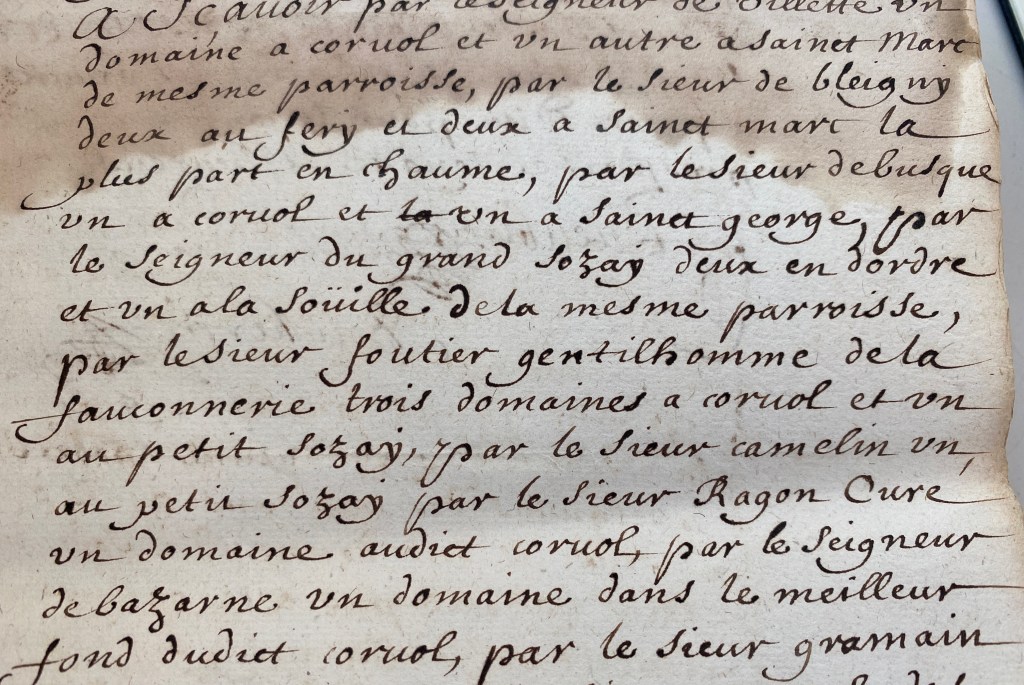 A Scavoir par le seigneur de Villette vn
domaine a coruol et vn autre a sainct Marc
de mesme parroisse, par le sieur de bleigny
deux au fery et deux a sainct marc la
plus part en chaume, par le sieur de busque
vn a coruol et la vn a sainct george, par
le seigneur du grand sozay deux en dordre
et vn a la soüille de la mesme parroisse,
par le sieur foutier gentilhomme de la
fauconnerie trois domaines a coruol et vn
au petit sozay, par le sieur camelin vn,
au petit sozay par le sieur Ragon Cure
vn domaine audict coruol, par le seigneur
de bazarne vn domaine dans le meilleur
fond dudict coruol, par le sieur gramain